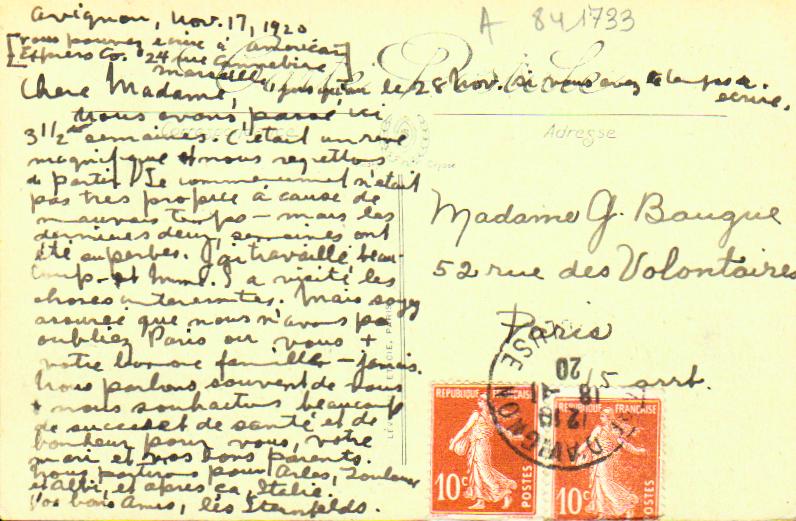 A 841733
Avignon, Nov. 17, 1920
[vous pouvez ecrire à American
Express Co. 24 rue Cannebière
Marseille, jusqu'au le 28 Nov. si vous avez le temps a
ecrire.
Carte Postale
Chere Madame,
Nous avons passé ici
3 1/2 semaines. C'était un reve
magnifique et nous regrettons
de partir. Le commencement n'était
pas tres propice à cause de
mauvais temps – mais les
dernieres deux semaines ont
été superbes. J'ai travaillé beau-
coup – et Mme. S a visité les
choses interesantes. Mais soyez
assuree que nous n'avons pas
oubliez Paris ou vous +
votre bonne famille – jamais.
Nous parlons souvent de vous
+ nous souhaitons beaucoup
de succes et de santé et de
bonheur pour vous, votre
mari et vos bons parents.
Nous partirons pour Arles, Toulouse
et Albi, et après ça, Italie.
Vos bons Amis, les Sternfelds.
Correspondance
Adresse
Madame G. Bauque
52 rue des Volontaires
Paris
15 arrt.
REPUBLIQUE FRANÇAISE
10c
POSTES
REPUBLIQUE FRANÇAISE
10c
POSTES
D'AVIGNON
12
18 -11
20